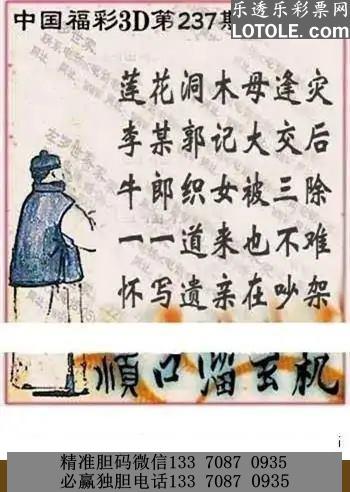 乐透乐彩票网
中国福彩3D第237期
LOTOLE.COM
莲花洞木母逢灾
李某郭记大交后
牛郎织女被三除
一一道来也不难
怀写遗亲在吵架
顺口溜玄机
精准胆码微信133 7087 0935
必赢独胆电话133 7087 0935